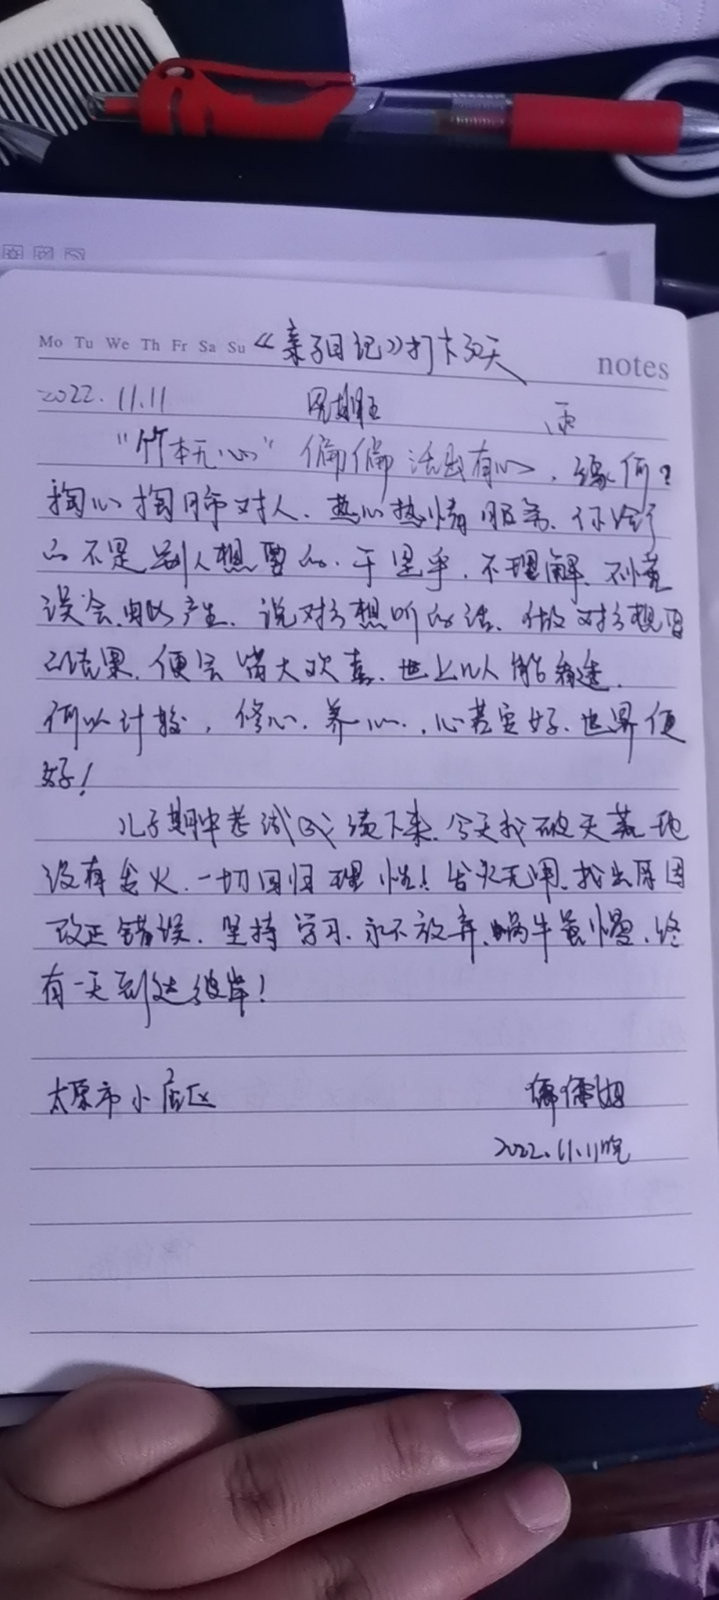 Mo Tu We Th Fr Sa Su 《亲子日记》打卡 天
notes
2022.11.11 星期五 雨
“竹本无心” 偏偏活出有心,缘何?
掏心掏肺对人、热心热情服务、你给予
的不是别人想要的、于是乎、不理解、不
误会由此产生、说对方想听的话、做对方想要
的结果、便会皆大欢喜、世上几人能看透、
何以计较,修心、养心、,心若安好、世界便
好!
儿子期中考试成绩下来、今天我破天荒地
没有发火、一切回归理性!发火无用、找出原因
改正错误、坚持学习、永不放弃、蜗牛虽慢、终
有一天到达彼岸!
太原市小店区
2022.11.11晚